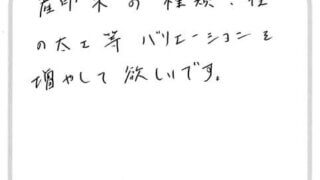 産印木の種類、柱
の太工等バリエーションを
増やして欲しいです。